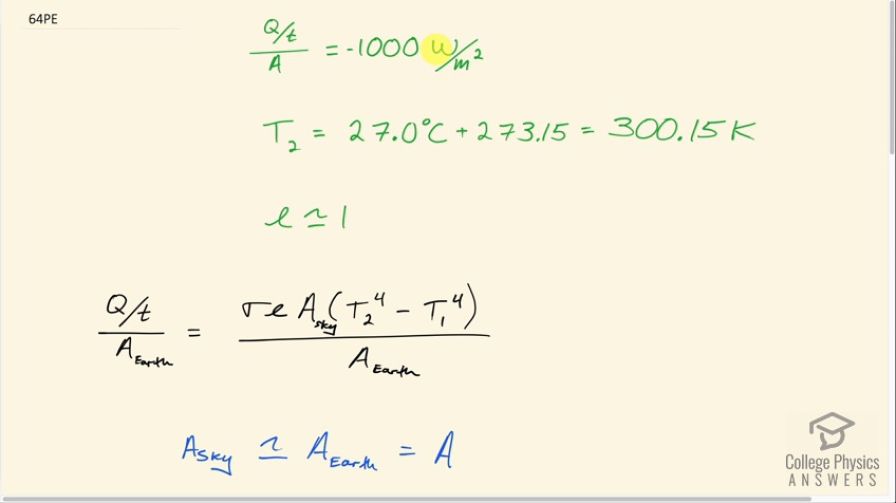 64PE
Q/t / A = -1000 W/m²
T₂ = 27.0°C + 273.15 = 300.15 K
e ≃ 1
Q/t / A_Earth = σ e A_sky (T₂⁴ − T₁⁴) / A_Earth
A_sky ≃ A_Earth = A
College Physics
ANSWERS